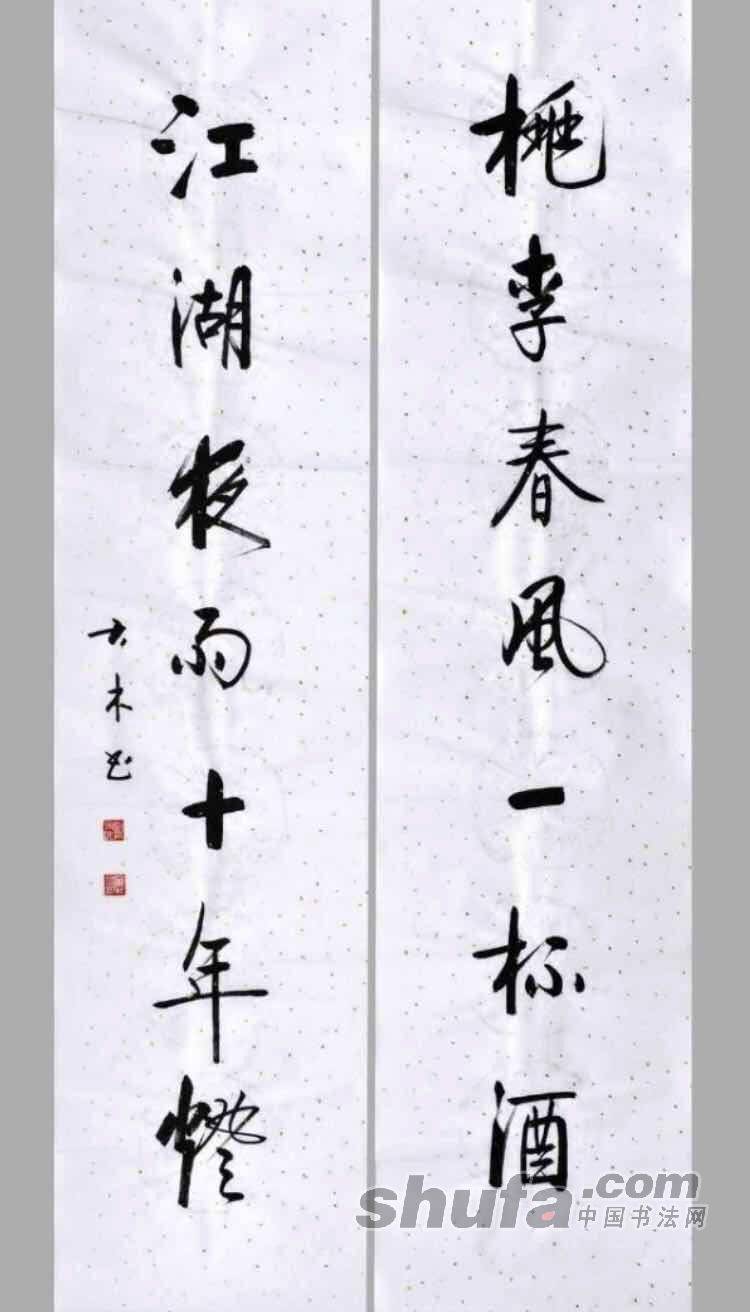 桃李春風一杯酒
江湖夜雨十年燈
木书
shufa.com
中国书法网